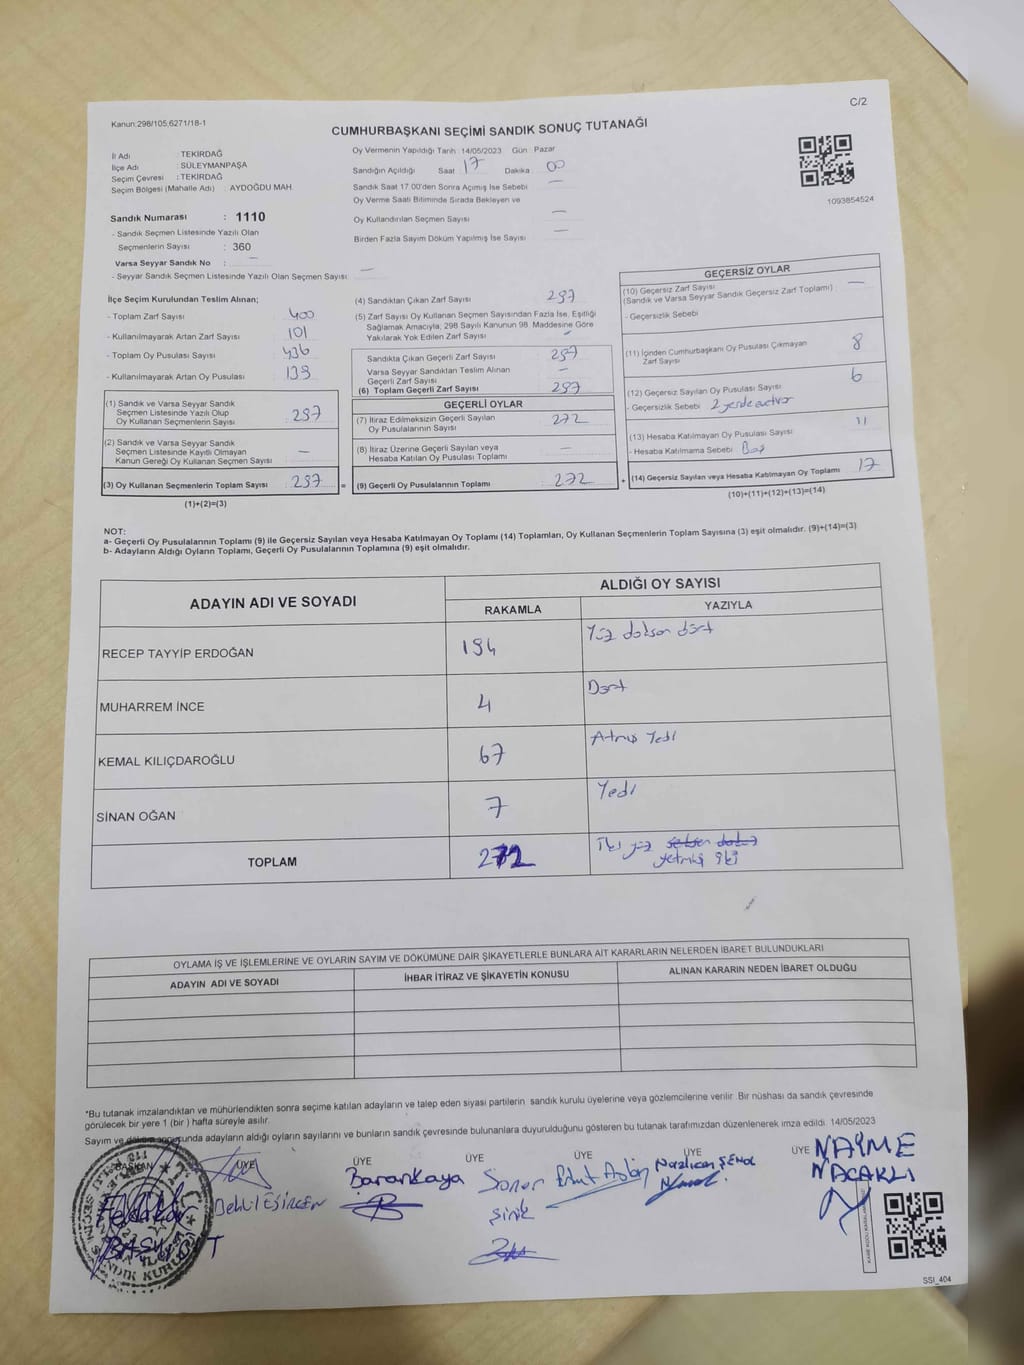 C/2
Kanun:298/105,6271/18-1
CUMHURBAŞKANI SEÇİMİ SANDIK SONUÇ TUTANAĞI
İl Adı : TEKİRDAĞ
İlçe Adı : SÜLEYMANPAŞA
Seçim Çevresi : TEKİRDAĞ
Seçim Bölgesi (Mahalle Adı) : AYDOĞDU MAH.
Oy Vermenin Yapıldığı Tarih : 14/05/2023 Gün : Pazar
Sandığın Açıldığı Saat 17 Dakika 00
Sandık Saat 17.00'den Sonra Açımış İse Sebebi —
Oy Verme Saati Bitiminde Sırada Bekleyen ve
Oy Kullandırılan Seçmen Sayısı —
Birden Fazla Sayım Döküm Yapılmış İse Sayısı —
1093854524
Sandık Numarası : 1110
- Sandık Seçmen Listesinde Yazılı Olan
Seçmenlerin Sayısı : 360
Varsa Seyyar Sandık No : —
- Seyyar Sandık Seçmen Listesinde Yazılı Olan Seçmen Sayısı: —
İlçe Seçim Kurulundan Teslim Alınan;
- Toplam Zarf Sayısı : 400
- Kullanılmayarak Artan Zarf Sayısı : 101
- Toplam Oy Pusulası Sayısı : 436
- Kullanılmayarak Artan Oy Pusulası : 139
(1) Sandık ve Varsa Seyyar Sandık
Seçmen Listesinde Yazılı Olup
Oy Kullanan Seçmenlerin Sayısı : 297
(2) Sandık ve Varsa Seyyar Sandık
Seçmen Listesinde Kayıtlı Olmayan
Kanun Gereği Oy Kullanan Seçmen Sayısı : —
(3) Oy Kullanan Seçmenlerin Toplam Sayısı : 297 =
(1)+(2)=(3)
(4) Sandıktan Çıkan Zarf Sayısı 297
(5) Zarf Sayısı Oy Kullanan Seçmen Sayısından Fazla İse, Eşitliği
Sağlamak Amacıyla, 298 Sayılı Kanunun 98. Maddesine Göre
Yakılarak Yok Edilen Zarf Sayısı
Sandıkta Çıkan Geçerli Zarf Sayısı 297
Varsa Seyyar Sandıktan Teslim Alınan
Geçerli Zarf Sayısı —
(6) Toplam Geçerli Zarf Sayısı 297
GEÇERLİ OYLAR
(7) İtiraz Edilmeksizin Geçerli Sayılan
Oy Pusulalarının Sayısı 272
(8) İtiraz Üzerine Geçerli Sayılan veya
Hesaba Katılan Oy Pusulası Toplamı —
(9) Geçerli Oy Pusulalarının Toplamı 272 +
GEÇERSİZ OYLAR
(10) Geçersiz Zarf Sayısı
(Sandık ve Varsa Seyyar Sandık Geçersiz Zarf Toplamı) : —
- Geçersizlik Sebebi
(11) İçinden Cumhurbaşkanı Oy Pusulası Çıkmayan
Zarf Sayısı 8
(12) Geçersiz Sayılan Oy Pusulası Sayısı 6
- Geçersizlik Sebebi : 2 yerde
(13) Hesaba Katılmayan Oy Pusulası Sayısı 11
- Hesaba Katılmama Sebebi : Boş
(14) Geçersiz Sayılan veya Hesaba Katılmayan Oy Toplamı 17
(10)+(11)+(12)+(13)=(14)
NOT:
a- Geçerli Oy Pusulalarının Toplamı (9) ile Geçersiz Sayılan veya Hesaba Katılmayan Oy Toplamı (14) Toplamları, Oy Kullanan Seçmenlerin Toplam Sayısına (3) eşit olmalıdır. (9)+(14)=(3)
b- Adayların Aldığı Oyların Toplamı, Geçerli Oy Pusulalarının Toplamına (9) eşit olmalıdır.
ADAYIN ADI VE SOYADI ALDIĞI OY SAYISI
RAKAMLA YAZIYLA
RECEP TAYYİP ERDOĞAN 194 Yüz doksan dört
MUHARREM İNCE 4 Dört
KEMAL KILIÇDAROĞLU 67 Atmış Yedi
SİNAN OĞAN 7 Yedi
TOPLAM 272 İki yüz seksen dokuz
yetmiş iki
OYLAMA İŞ VE İŞLEMLERİNE VE OYLARIN SAYIM VE DÖKÜMÜNE DAİR ŞİKAYETLERLE BUNLARA AİT KARARLARIN NELERDEN İBARET BULUNDUKLARI
ADAYIN ADI VE SOYADI İHBAR İTİRAZ VE ŞİKAYETİN KONUSU ALINAN KARARIN NEDEN İBARET OLDUĞU
*Bu tutanak imzalandıktan ve mühürlendikten sonra seçime katılan adayların ve talep eden siyasi partilerin sandık kurulu üyelerine veya gözlemcilerine verilir. Bir nüshası da sandık çevresinde
görülecek bir yere 1 (bir) hafta süreyle asılır.
Sayım ve döküm sonucunda adayların aldığı oyların sayılarını ve bunların sandık çevresinde bulunanlara duyurulduğunu gösteren bu tutanak tarafımızdan düzenlenerek imza edildi. 14/05/2023
BAŞKAN ÜYE ÜYE ÜYE ÜYE ÜYE ÜYE
Baran Kaya
Soner
Şirik
Nazlıcan ŞENOL
NAİME
NACAKLI
SSI_404